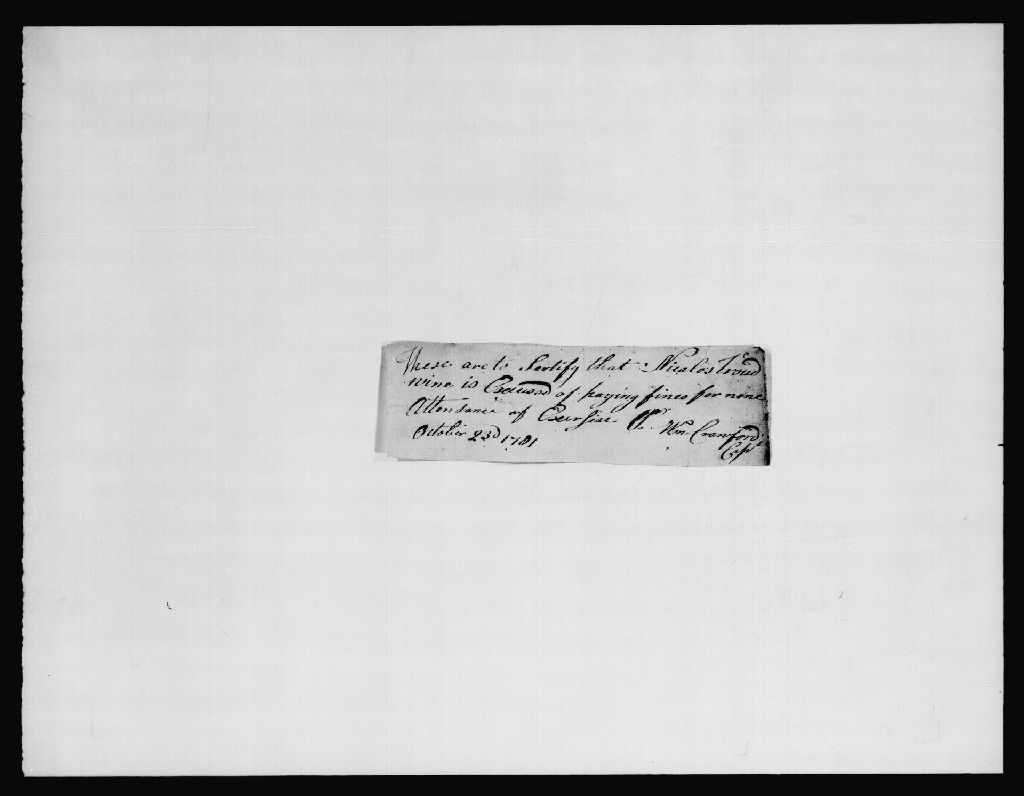 These are to Sertify that Nicales Troud
wine is Excused of paying fines for none
Attendance of Exersise Pr Wm Crawford
October 23d 1781 Capt